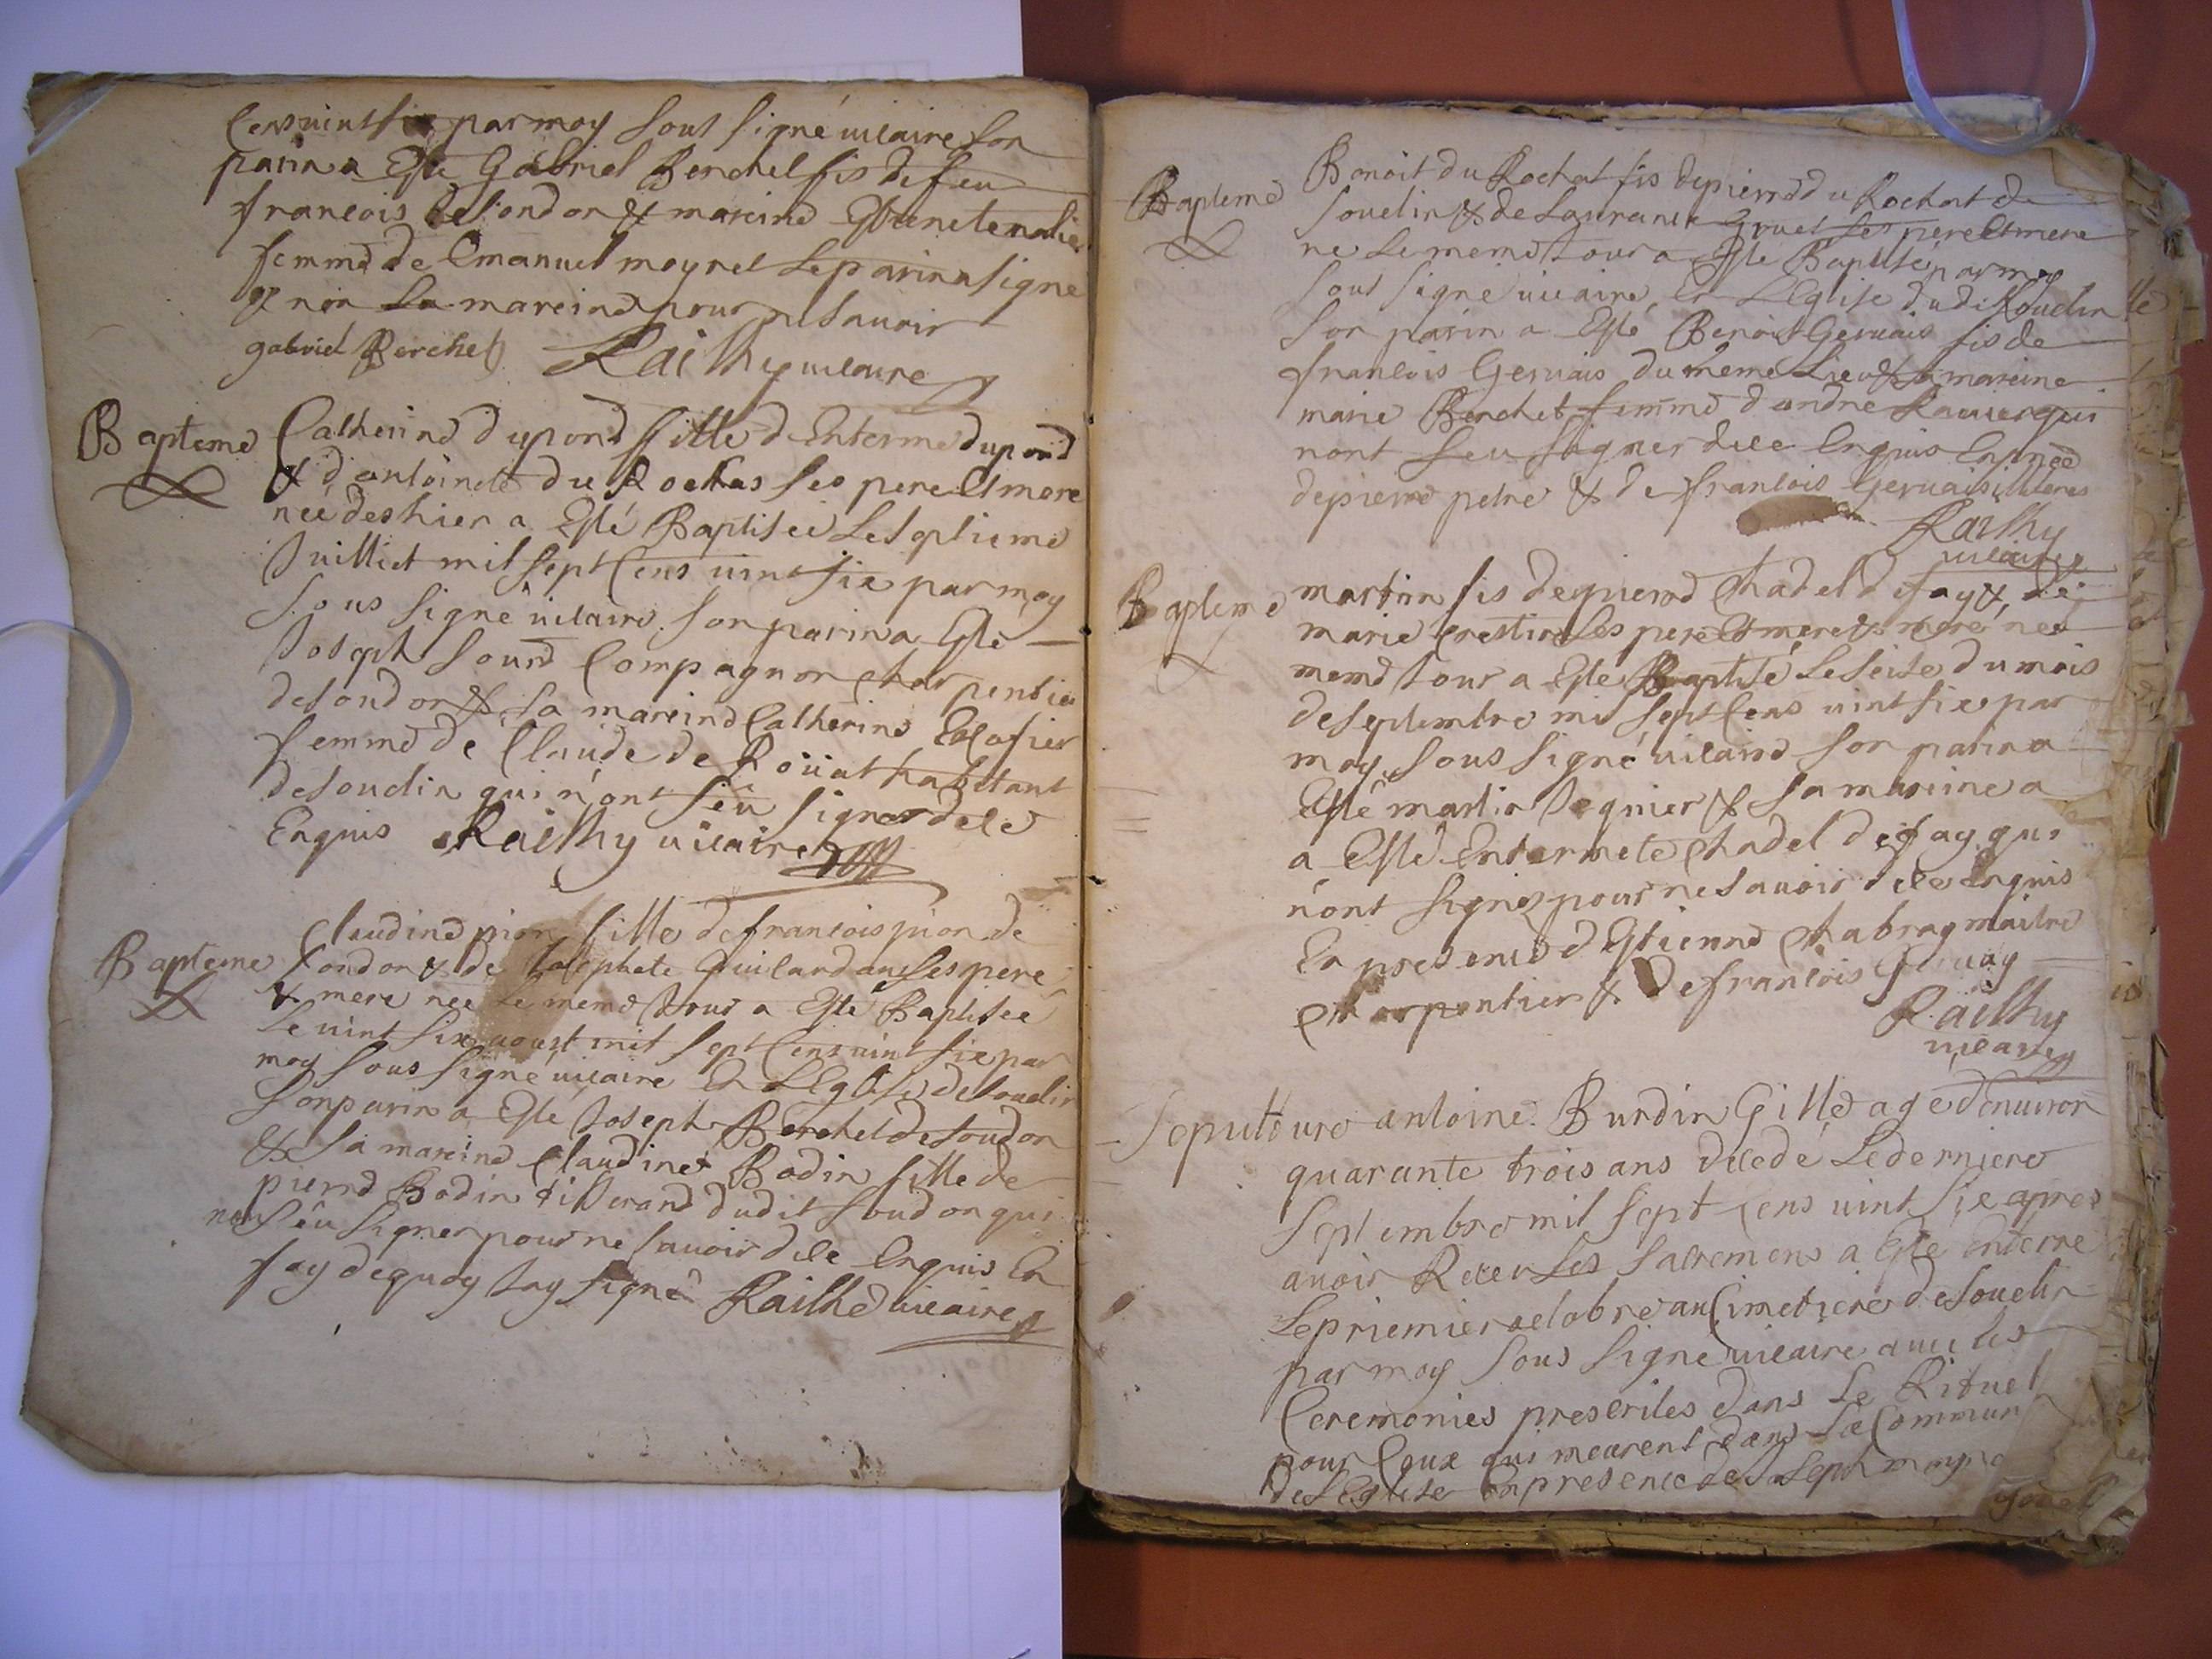 Cens uint six par moy sous signé uicaire son
parin a Esté Gabriel Berchet fis de feu
francois de sondon & mareine
femme de Emanuel moyret Le parin a signé
& non La mareine pour ne sauoir
gabriel Berchet Railhy uicaire
Bapteme Catherine dupond fille d Enterme dupond
& d antoinete du Rochas ses pere Et mere
neé des hier a Esté Baptisée Le septieme
Juilliet mil sept Cens uint six par moy
sous signé uicaire son parin a Esté
Joseph sourd Compagnon charpentier
de sondon & sa mareine Catherine
femme de Claude de Roüat habitant
de souclin qui n'ont sçu signer de ce
Enquis Railhy uicaire
Claudine pion fille de francois pion de
Bapteme sondon & de Josephete Guilandan ses pere
& mere neé Le meme Jour a Esté Baptisée
Le uint six aoust mil sept Cens uint six par
moy sous signé uicaire En L Eglise de souclin
son parin a Esté Joseph Berchet de soudon
& sa mareine Claudine Bodin fille de
pierre Bodin tisserand dudit soudon qui
nont sçu signer pour ne sauoir de ce Enquis En
foy dequoy Jay signé Railhe uicaire
Benoit du Rochat fis de pierre du Rochat de
Bapteme souclin & de Laurance Gruet ses pere Et mere
ne Le meme Jour a Esté Baptisé par moy
sous signé uicaire En L Eglise dudit souclin
son parin a Esté Benoit Geruais fis de
francois Geruais du meme Lieu & sa mareine
marie Berchet femme d andre Rauier qui
nont sçu signer de ce Enquis En pnce
de pierre petre & de francois Geruais
Railhy
uicaire
Bapteme martin fis de pierre chadel de fay & de
marie crestin ses pere Et mere & mere né
meme Jour a Esté Baptisé Le seise du mois
de septembre mil sept Cens uint six par
moy sous signé uicaire son parin a
Esté martin & sa mareine a
a Esté Entermete chadel de fay qui
n'ont signes pour ne sauoir de ce Enquis
En presence d Etienne chabray maitre
charpentier & de francois Geruay
Railhy
uicaire
Sepulture antoine Burdin Gille age d enuiron
quarante trois ans decedé Le derniere
septembre mil sept Cens uint six apres
auoir Receu Les sacremens a Esté Enterre
Le priemier octobre au Cimetiere de souclin
par moy sous signé uicaire auec les
Ceremonies prescrites dans Le Rituel
pour Ceux qui meurent dans La Commun
de L Eglise En presence de Joseph